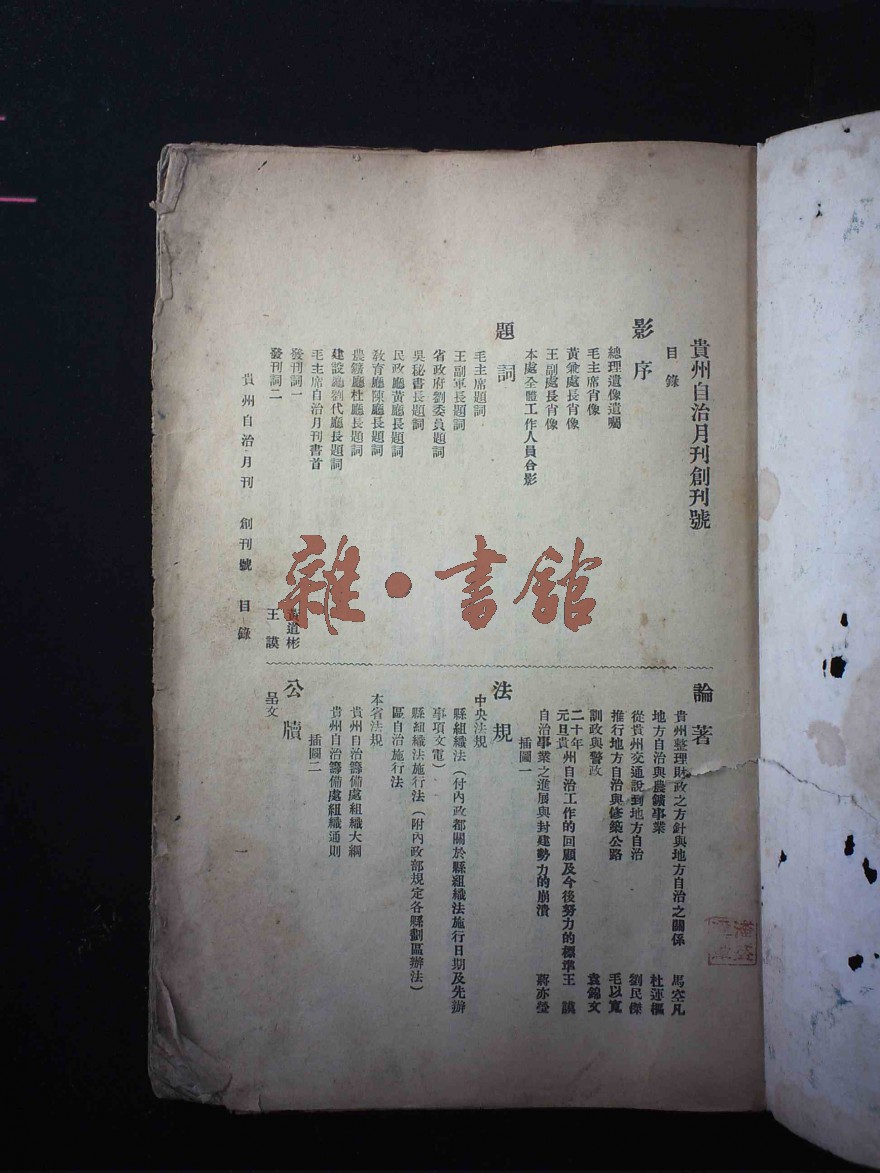 貴州自治月刊創刊號
目錄
影序
總理遺像遺囑
毛主席肖像
黃兼處長肖像
王副處長肖像
本處全體工作人員合影
題詞
毛主席題詞
王副軍長題詞
省政府劉委員題詞
吳秘書長題詞
民政廳黃廳長題詞
教育廳陳廳長題詞
農鑛廳杜廳長題詞
建設廳劉代廳長題詞
毛主席自治月刊書首
發刊詞一 黃道彬
發刊詞二 王謨
論著
貴州整理財政之方針與地方自治之關係 馬空凡
地方自治與農鑛事業 杜運樞
從貴州交通說到地方自治 劉民傑
推行地方自治與修築公路 毛以寬
訓政與警政 袁錦文
二十年元旦貴州自治工作的回顧及今後努力的標準 王謨
自治事業之進展與封建勢力的崩潰 蔣亦瑩
插圖一
法規
中央法規
縣組織法(付內政都關於縣組織法施行日期及先辦
事項文電)
縣組織法施行法(附內政部規定各縣劃區辦法)
區自治施行法
本省法規
貴州自治籌備處組織大綱
貴州自治籌備處組織通則
插圖二
公牘
呈文
貴州自治月刊 創刊號 目錄
一
雜·書館